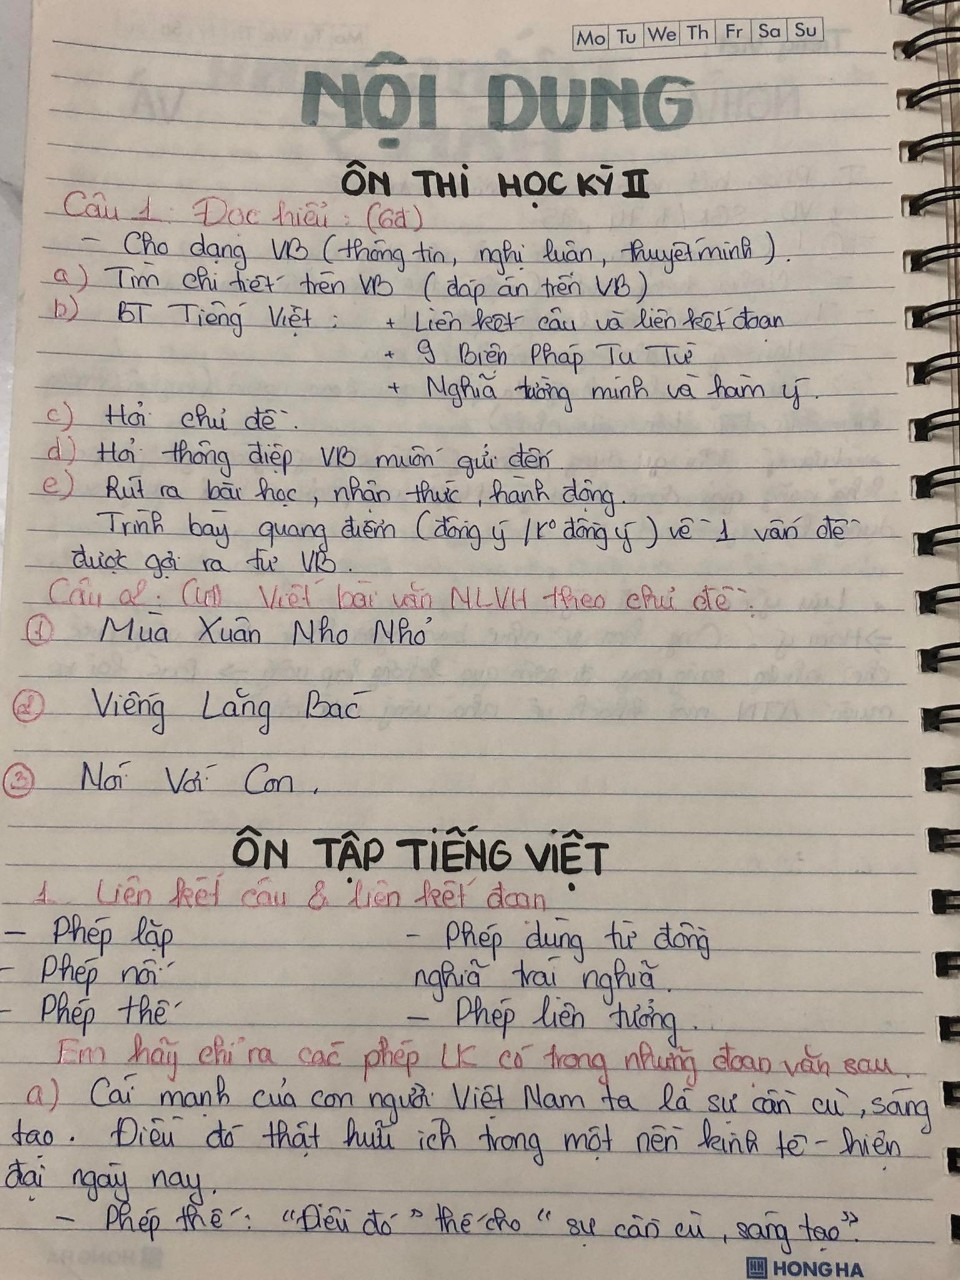 Mo Tu We Th Fr Sa Su
NỘI DUNG
ÔN THI HỌC KỲ II
Câu 1: Đọc hiểu: (6đ)
- Cho dạng VB (thông tin, nghị luận, thuyết minh).
a) Tìm chi tiết trên VB (đáp án trên VB)
b) BT Tiếng Việt: + Liên kết câu và liên kết đoạn
+ 9 Biện Pháp Tu Từ
+ Nghĩa tường minh và hàm ý.
c) Hỏi chủ đề.
d) Hỏi thông điệp VB muốn gửi đến
e) Rút ra bài học, nhận thức, hành động.
Trình bày quang điểm (đồng ý / k° đồng ý) về 1 vấn đề
được gợi ra từ VB.
Câu 2: (4đ) Viết bài văn NLVH theo chủ đề:
① Mùa Xuân Nho Nhỏ
② Viếng Lăng Bác
③ Nói Với Con.
ÔN TẬP TIẾNG VIỆT
1. Liên kết câu & liên kết đoạn
- Phép lặp - Phép dùng từ đồng
- Phép nối nghĩa trái nghĩa.
- Phép thế - Phép liên tưởng.
Em hãy chỉ ra các phép LK có trong những đoạn văn sau.
a) Cái mạnh của con người Việt Nam ta là sự cần cù, sáng
tạo. Điều đó thật hữu ích trong một nền kinh tế - hiện
đại ngày nay.
- Phép thế: "Điều đó" thế cho "sự cần cù, sáng tạo".
HH HONG HA